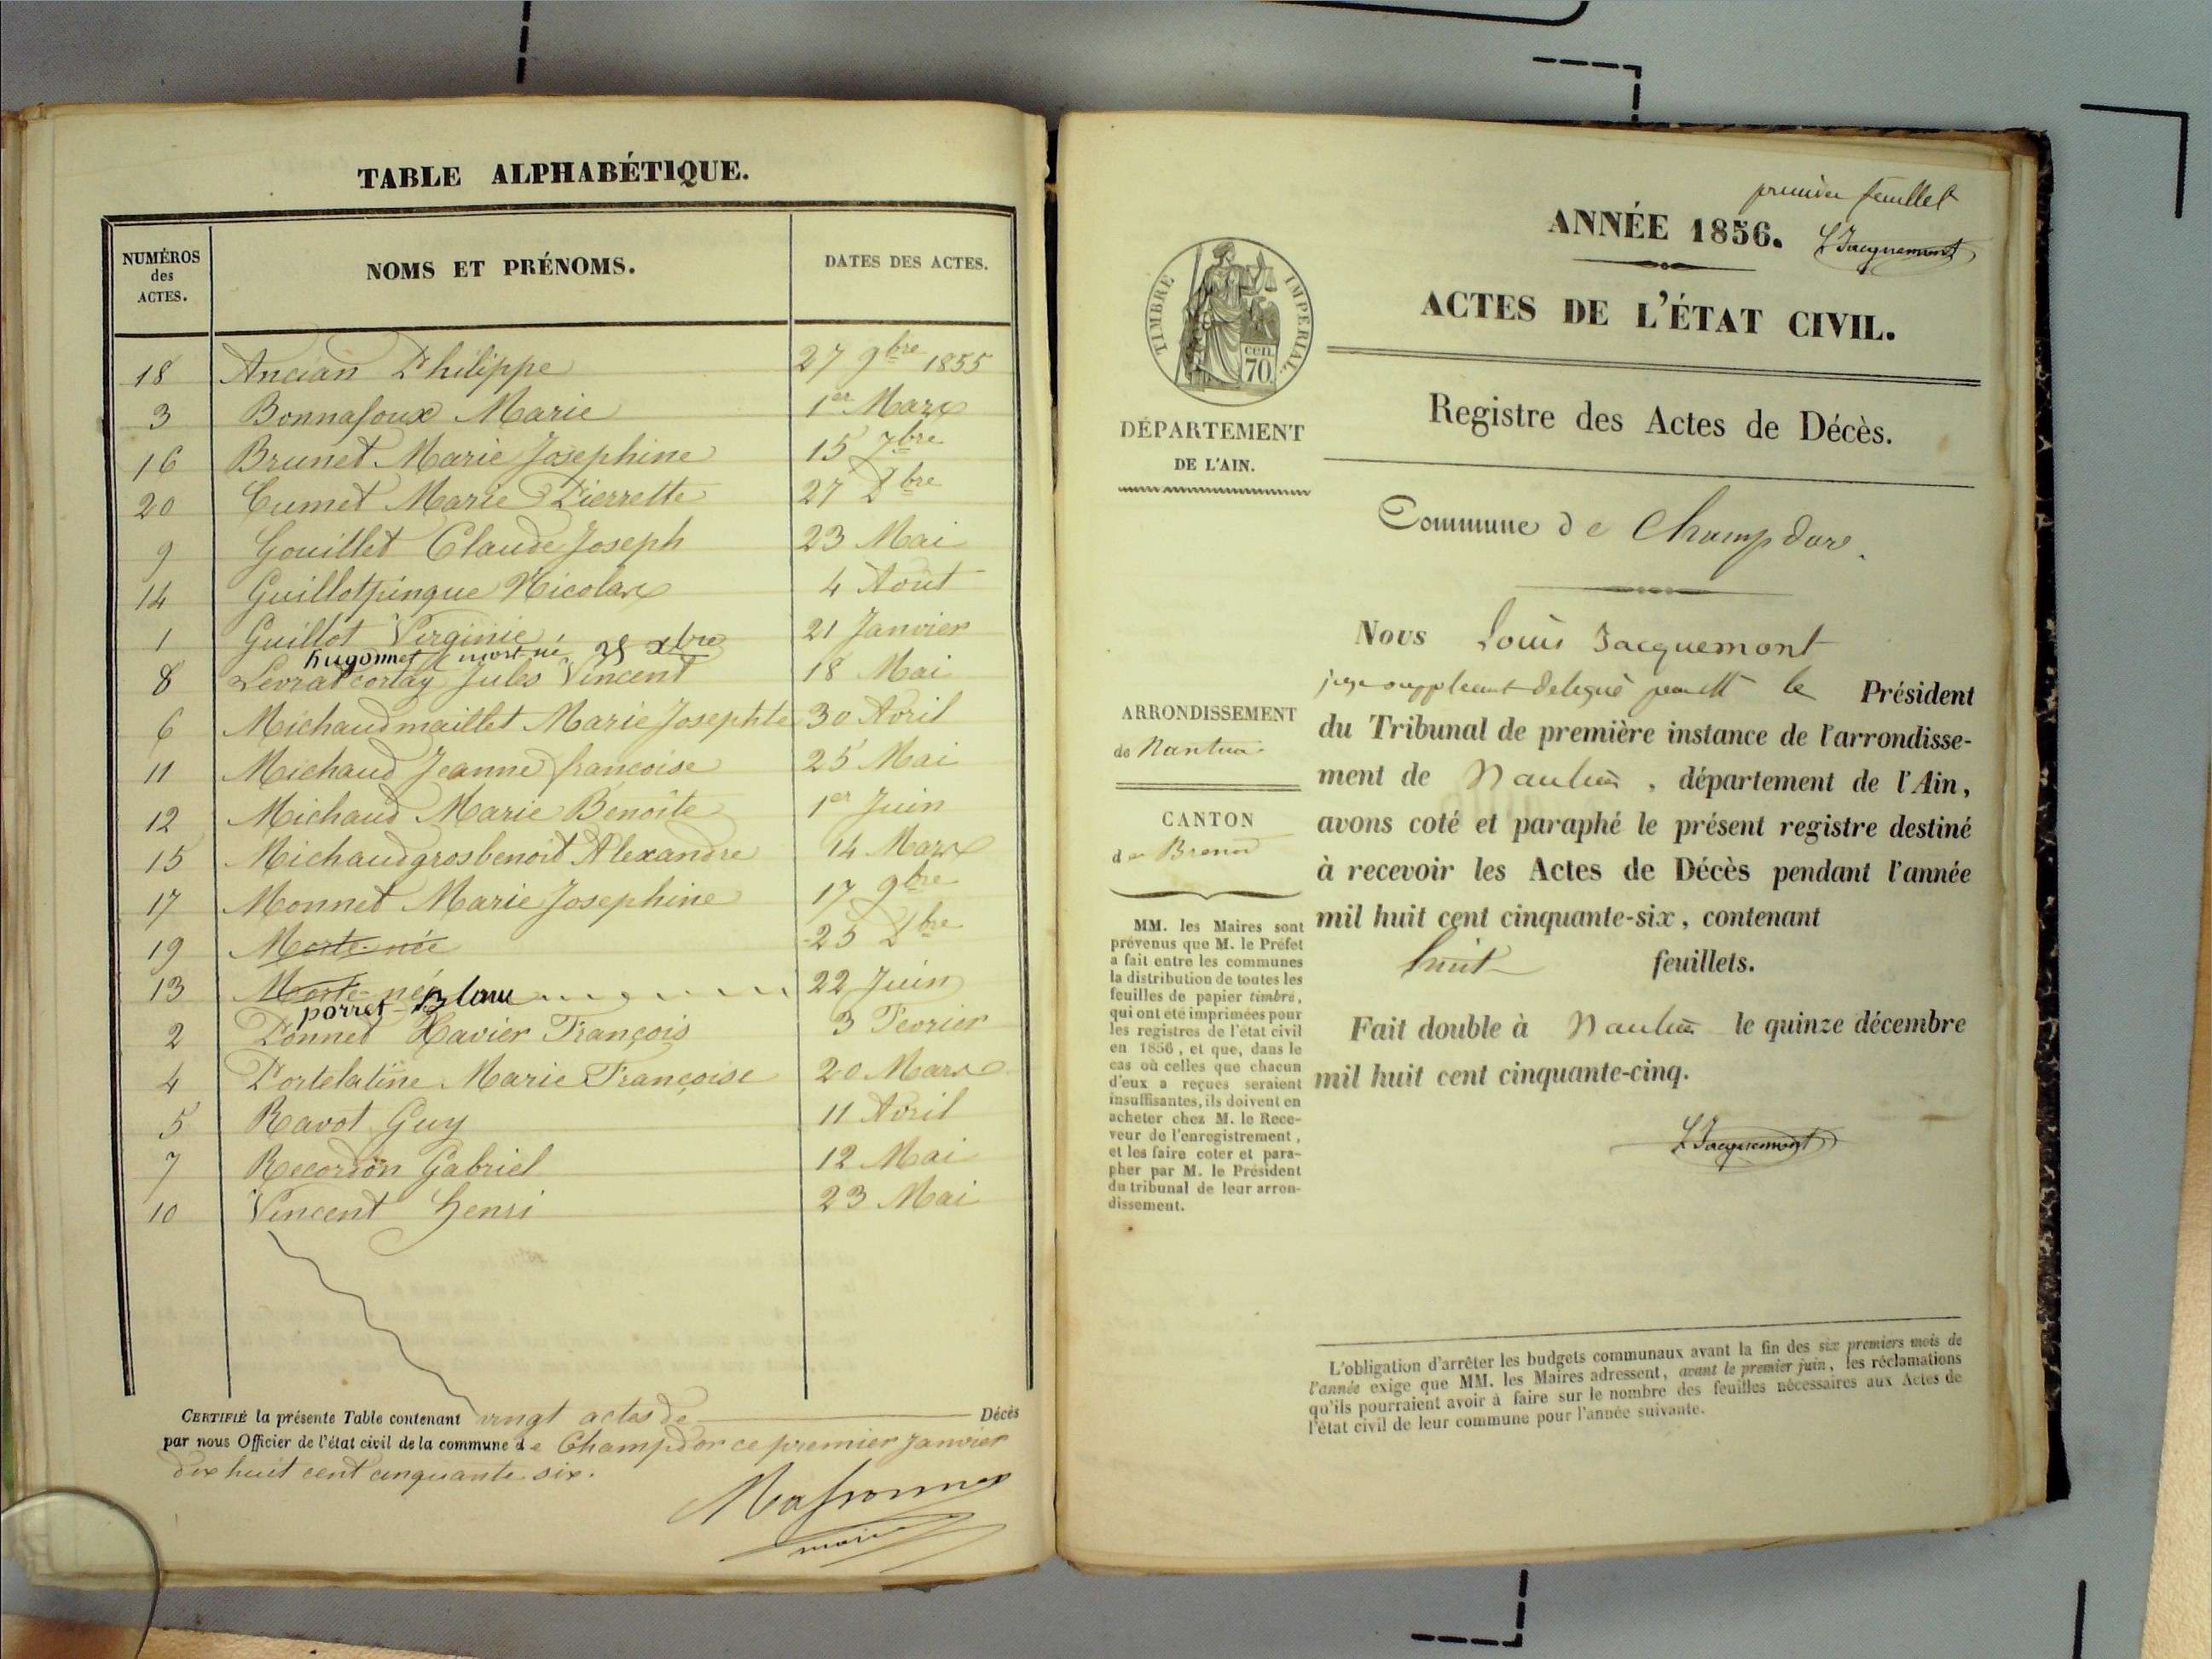 TABLE ALPHABÉTIQUE.
NUMÉROS des ACTES. NOMS ET PRÉNOMS. DATES DES ACTES.
18 Ancian Philippe 27 9bre 1855
3 Bonnafoux Marie 1er Mars
16 Brunet Marie Josephine 15 7bre
20 Cumet Marie Pierrette 27 Xbre
9 Gouillet Claude Joseph 23 Mai
14 Guillotpingue Nicolas 4 Août
1 Guillot Virginie 21 Janvier
hugonnet mort-né 25 xbre
8 Levrat cortay Jules Vincent 18 Mai
6 Michaudmaillet Marie Josephte 30 Avril
11 Michaud Jeanne francoise 25 Mai
12 Michaud Marie Benoite 1er Juin
15 Michaudgrosbenoit Alexandre 14 Mars
17 Monnet Marie Josephine 17 9bre
19 Morte-née 25 Xbre
13 Morte-née 22 Juin
porret-Blanc
2 Ponnet Xavier François 3 Fevrier
4 Portelatine Marie Françoise 20 Mars
5 Ravot Guy 11 Avril
7 Recordon Gabriel 12 Mai
10 Vincent Henri 23 Mai
CERTIFIÉ la présente Table contenant vingt actes de Décès
par nous Officier de l'état civil de la commune de Champdor ce premier Janvier
dix huit cent cinquante six.
maire
premier feuillet
ANNÉE 1856.
L Jacquemont
ACTES DE L'ÉTAT CIVIL.
TIMBRE IMPERIAL
cen. 70.
DÉPARTEMENT
DE L'AIN.
Registre des Actes de Décès.
Commune de Champdore
Nous Louis Jacquemont
juge suppleant délégué le Président
du Tribunal de première instance de l'arrondisse-
ment de Nantua, département de l'Ain,
avons coté et paraphé le présent registre destiné
à recevoir les Actes de Décès pendant l'année
mil huit cent cinquante-six, contenant
huit feuillets.
Fait double à Nantua le quinze décembre
mil huit cent cinquante-cinq.
L Jacquemont
ARRONDISSEMENT
de Nantua
CANTON
de Brenod
MM. les Maires sont
prévenus que M. le Préfet
a fait entre les communes
la distribution de toutes les
feuilles de papier timbré,
qui ont été imprimées pour
les registres de l'état civil
en 1856, et que, dans le
cas où celles que chacun
d'eux a reçues seraient
insuffisantes, ils doivent en
acheter chez M. le Rece-
veur de l'enregistrement,
et les faire coter et para-
pher par M. le Président
du tribunal de leur arron-
dissement.
L'obligation d'arrêter les budgets communaux avant la fin des six premiers mois de
l'année exige que MM. les Maires adressent, avant le premier juin, les réclamations
qu'ils pourraient avoir à faire sur le nombre des feuilles nécessaires aux Actes de
l'état civil de leur commune pour l'année suivante.